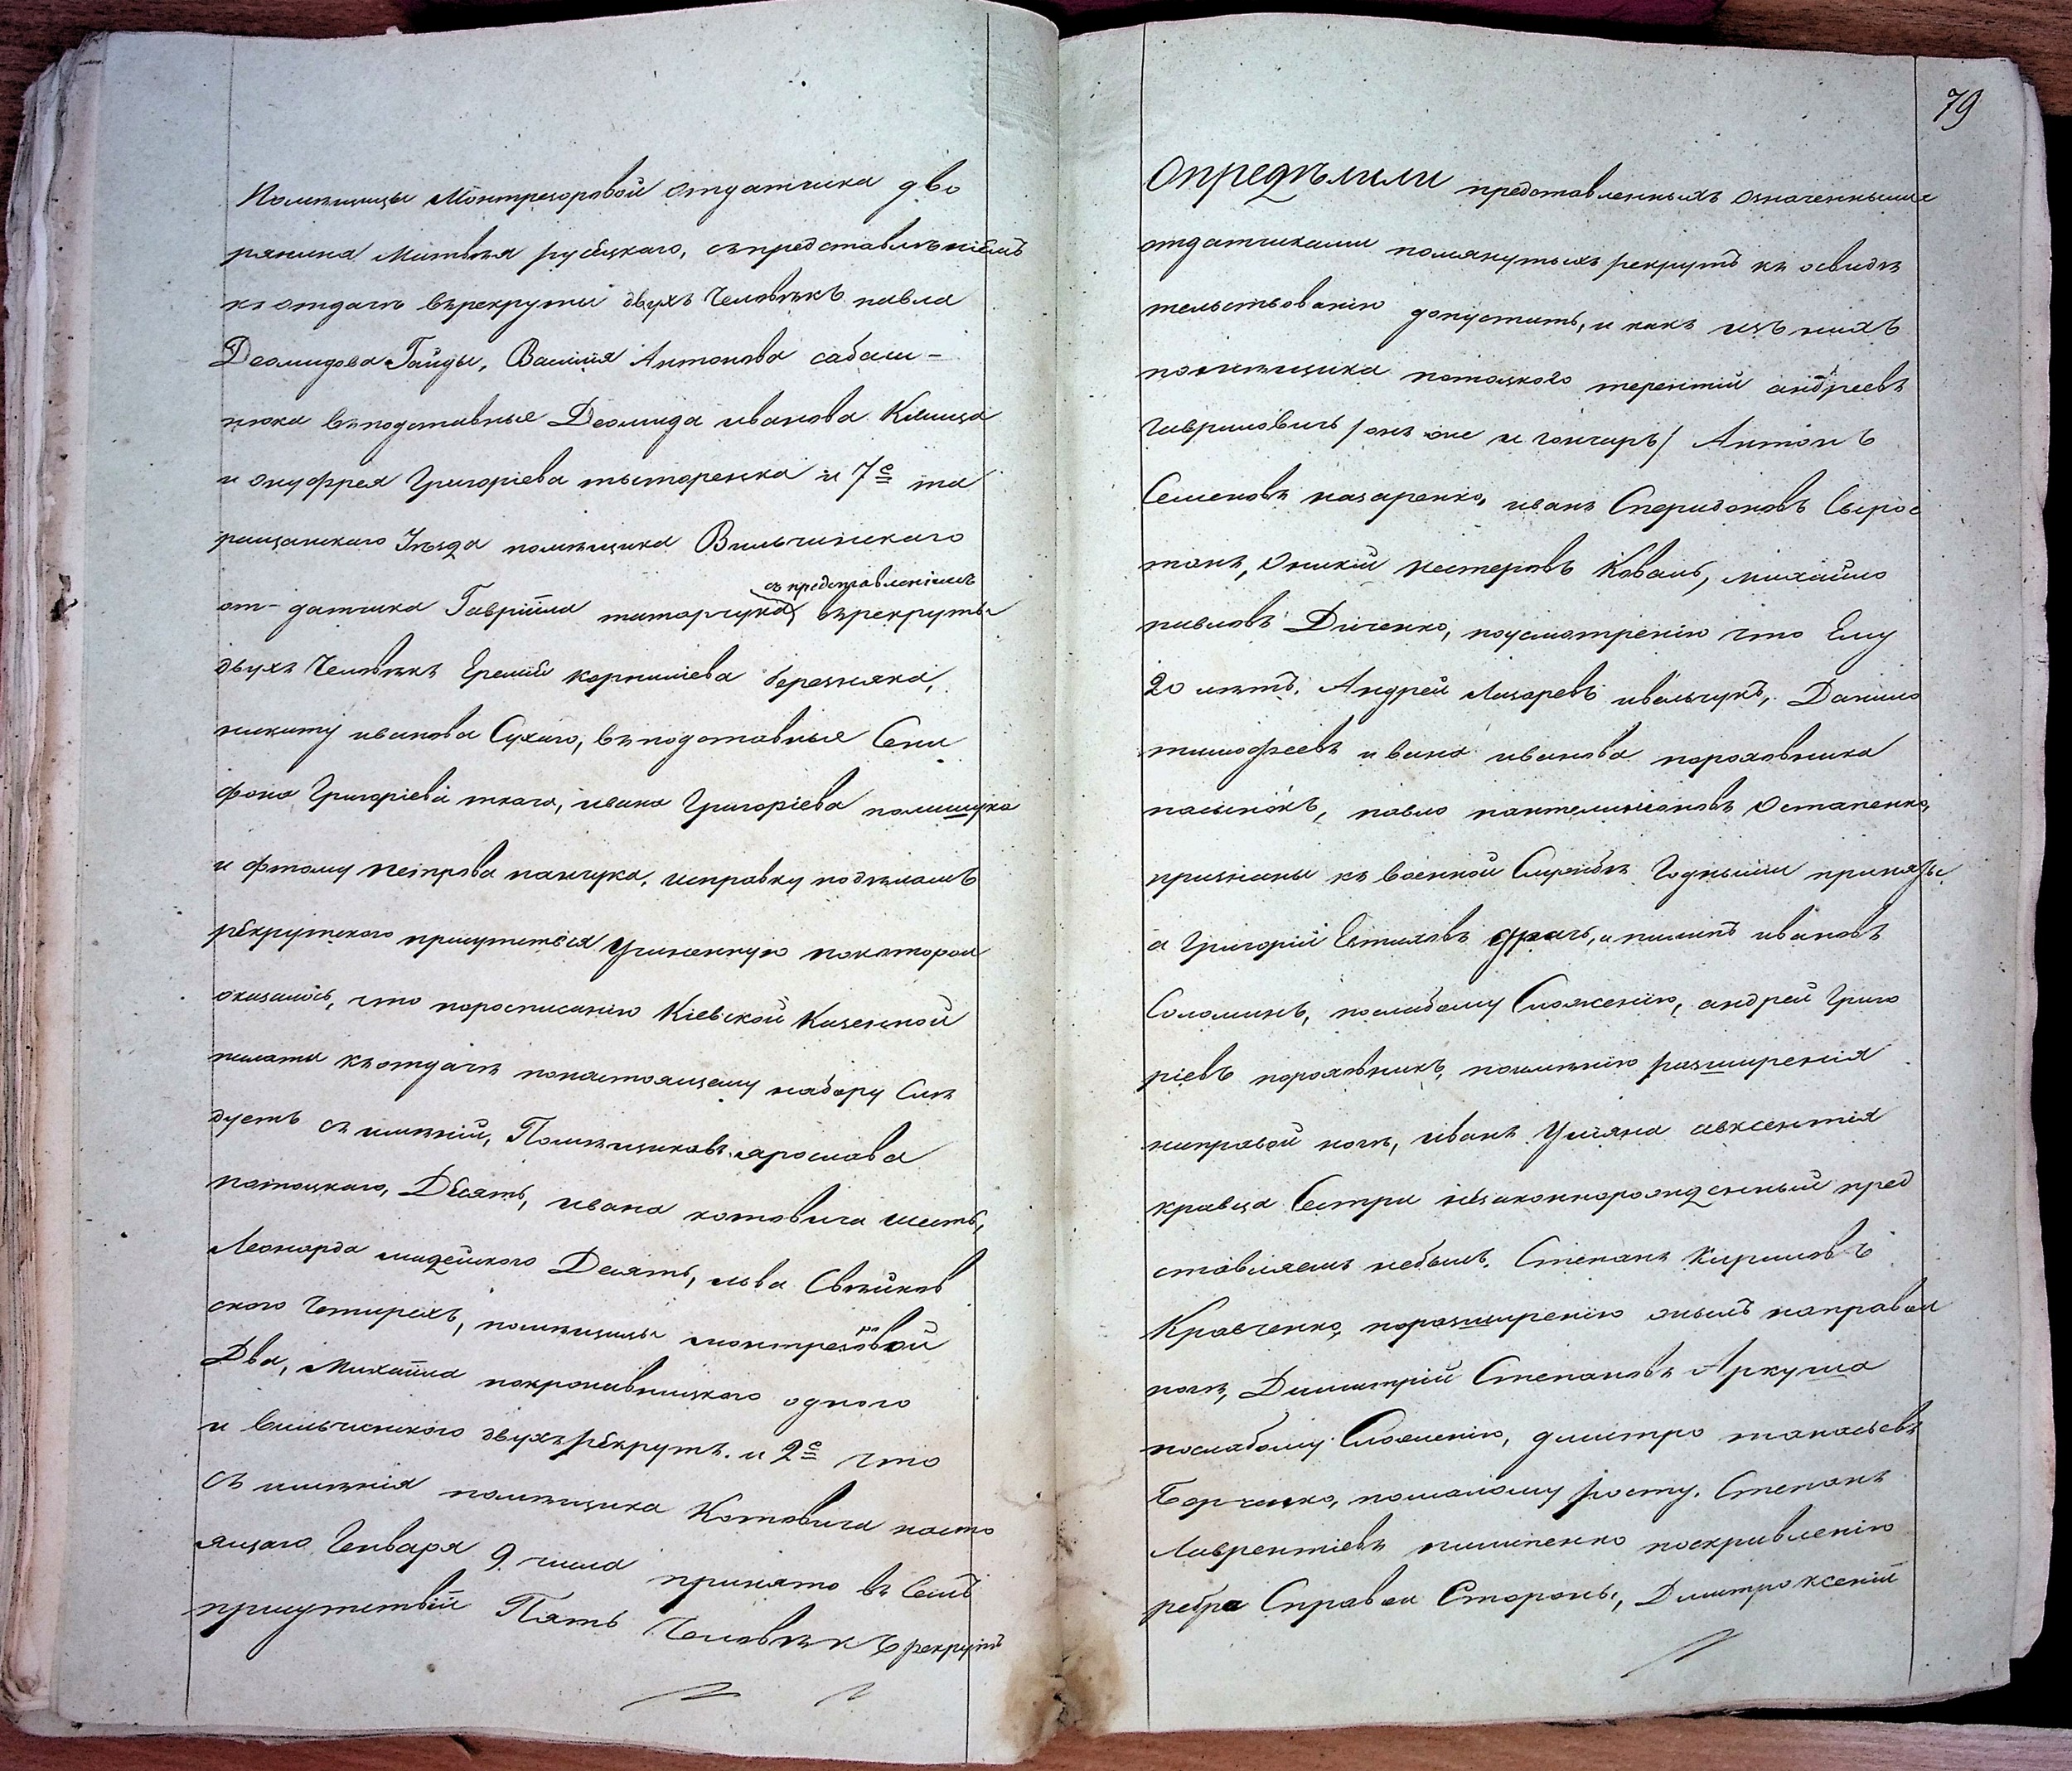 Помѣщицы Монтрезоровой отдатчика дво
рянина Матвѣя рубецкаго, съпредставлѣніемъ
къ отдачѣ врекруты двухъ Человѣкъ павла
Деомидова Гайды, Василія Антонова сабаш-
нюка вподставные Деомида иванова Клища
и онуфрея Григоріева тытаренка и 7е та
ращанскаго Уѣзда помѣщика Вильчинскаго
съ представленіемъ
от-датчика Гаврійла татарчука врекруты
двухъ Человѣкъ Еремѣя корниліева березняка,
никиту иванова Сухаго, вподставные Сени
фона Григоріева ткача, ивана Григоріева полищука
и фтому петрова панчука, исправку подѣламъ
рекрутского присутствія Учиненную покоторой
оказалось, что поросписанію Кіевской Казенной
палаты къотдачѣ понастоящему набору Слѣ
дуетъ съ имѣній, Помѣщиковъ ярослава
потоцкаго, Десять, ивана котовича шесть,
Леонарда Десять, льва Свѣйков
ского Четырехъ, помѣщицы монтрезоровой
Два, Михайла одного
и вильчинского двухъ рекрутъ. и 2е что
съ имѣнія помѣщика Котовича насто
ящаго Генваря 9 числа принято въ Семъ
присутствіи Пять Человѣкъ рекрутъ
79
Опредѣлили представленныхъ означенными
отдатчиками помянутыхъ рекрутъ къ освидѣ
тельствованію допустить, и какъ изъ нихъ
помѣщика потоцкого терентій андреевъ
гавриловичъ /онъ же и гончаръ/ Антонъ
Семеновъ назаренко, иванъ Спиридоновъ Сыро
ѣ нестеровъ Коваль, михайло
павловъ Диченко, поусмотренію что Ему
20 лѣтъ, Андрей Лазаревъ Данило
тимофеевъ ивана иванова пороховника
пасынокъ, павло пантелимоновъ Остапенко,
признаны къ военной Службѣ Годными приняты
а Григорій Евтиховъ драчъ, и пилипъ ивановъ
Соломинъ, послабому Сложенію, андрей Григо
ріевъ пороховникъ, поимѣнію разширенія
направой ногѣ, иванъ Уліяна авксентія
кравца Сестры незаконнорожденный пред
ставляемъ небылъ, Степанъ Кириловъ
Кравченко, поразширенію жылъ направой
ногѣ, Димитрій Степановъ Аркуша
послабому Сложенію, дмитро танасьевъ
Борченко, помалому росту, Степанъ
Лаврентіевъ пилипенко поскривленію
ребра Справой Стороны, Дмитро